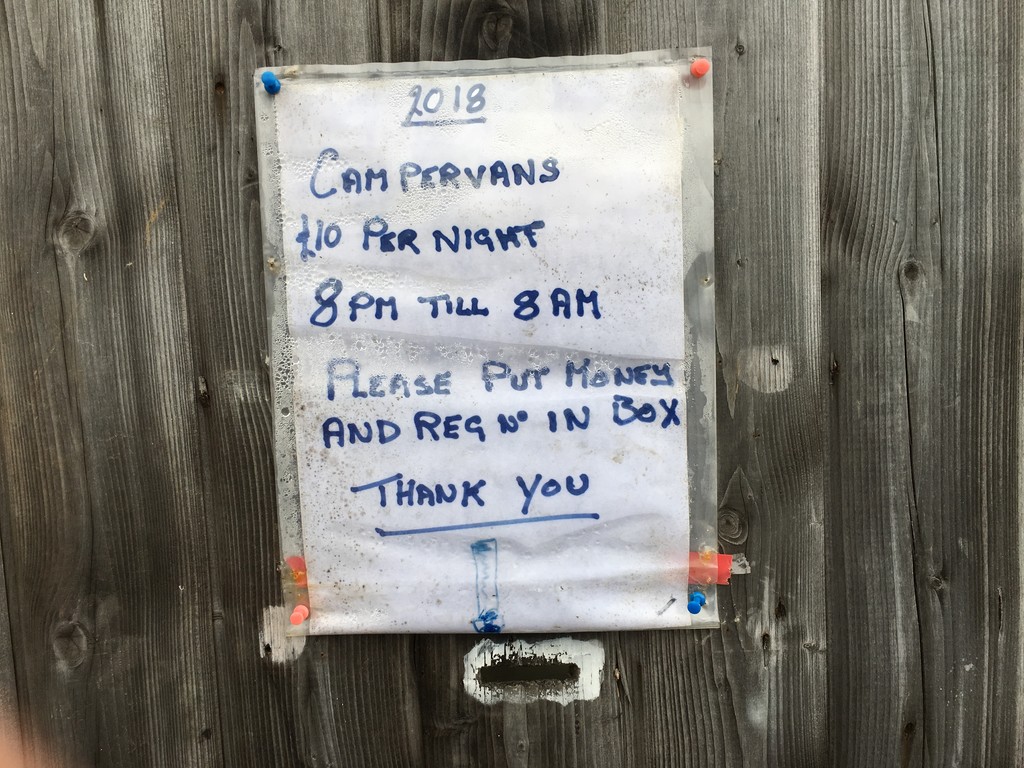 2018
CAMPERVANS
£10 PER NIGHT
8PM TILL 8AM
PLEASE PUT MONEY
AND REG Nº IN BOX
THANK YOU